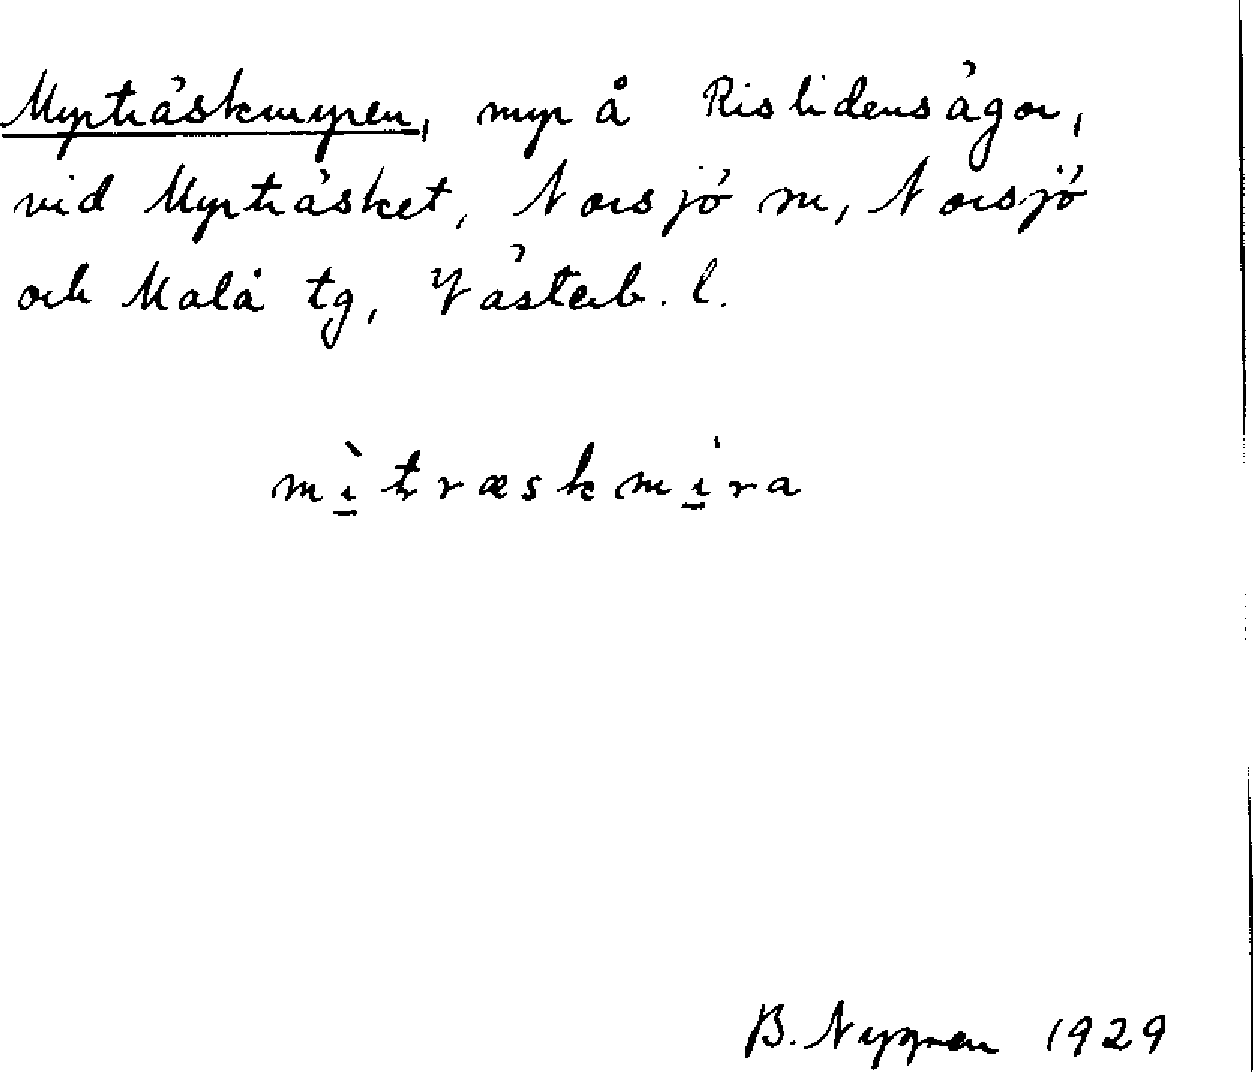 Myrträskmyren, myr å Rislidens ägor,
vid Myrträsket, Norsjö sn, Norsjö
och Malå tg, Västerb. l.
mı̱̀træskmı̱́ra
B. Nygren 1929